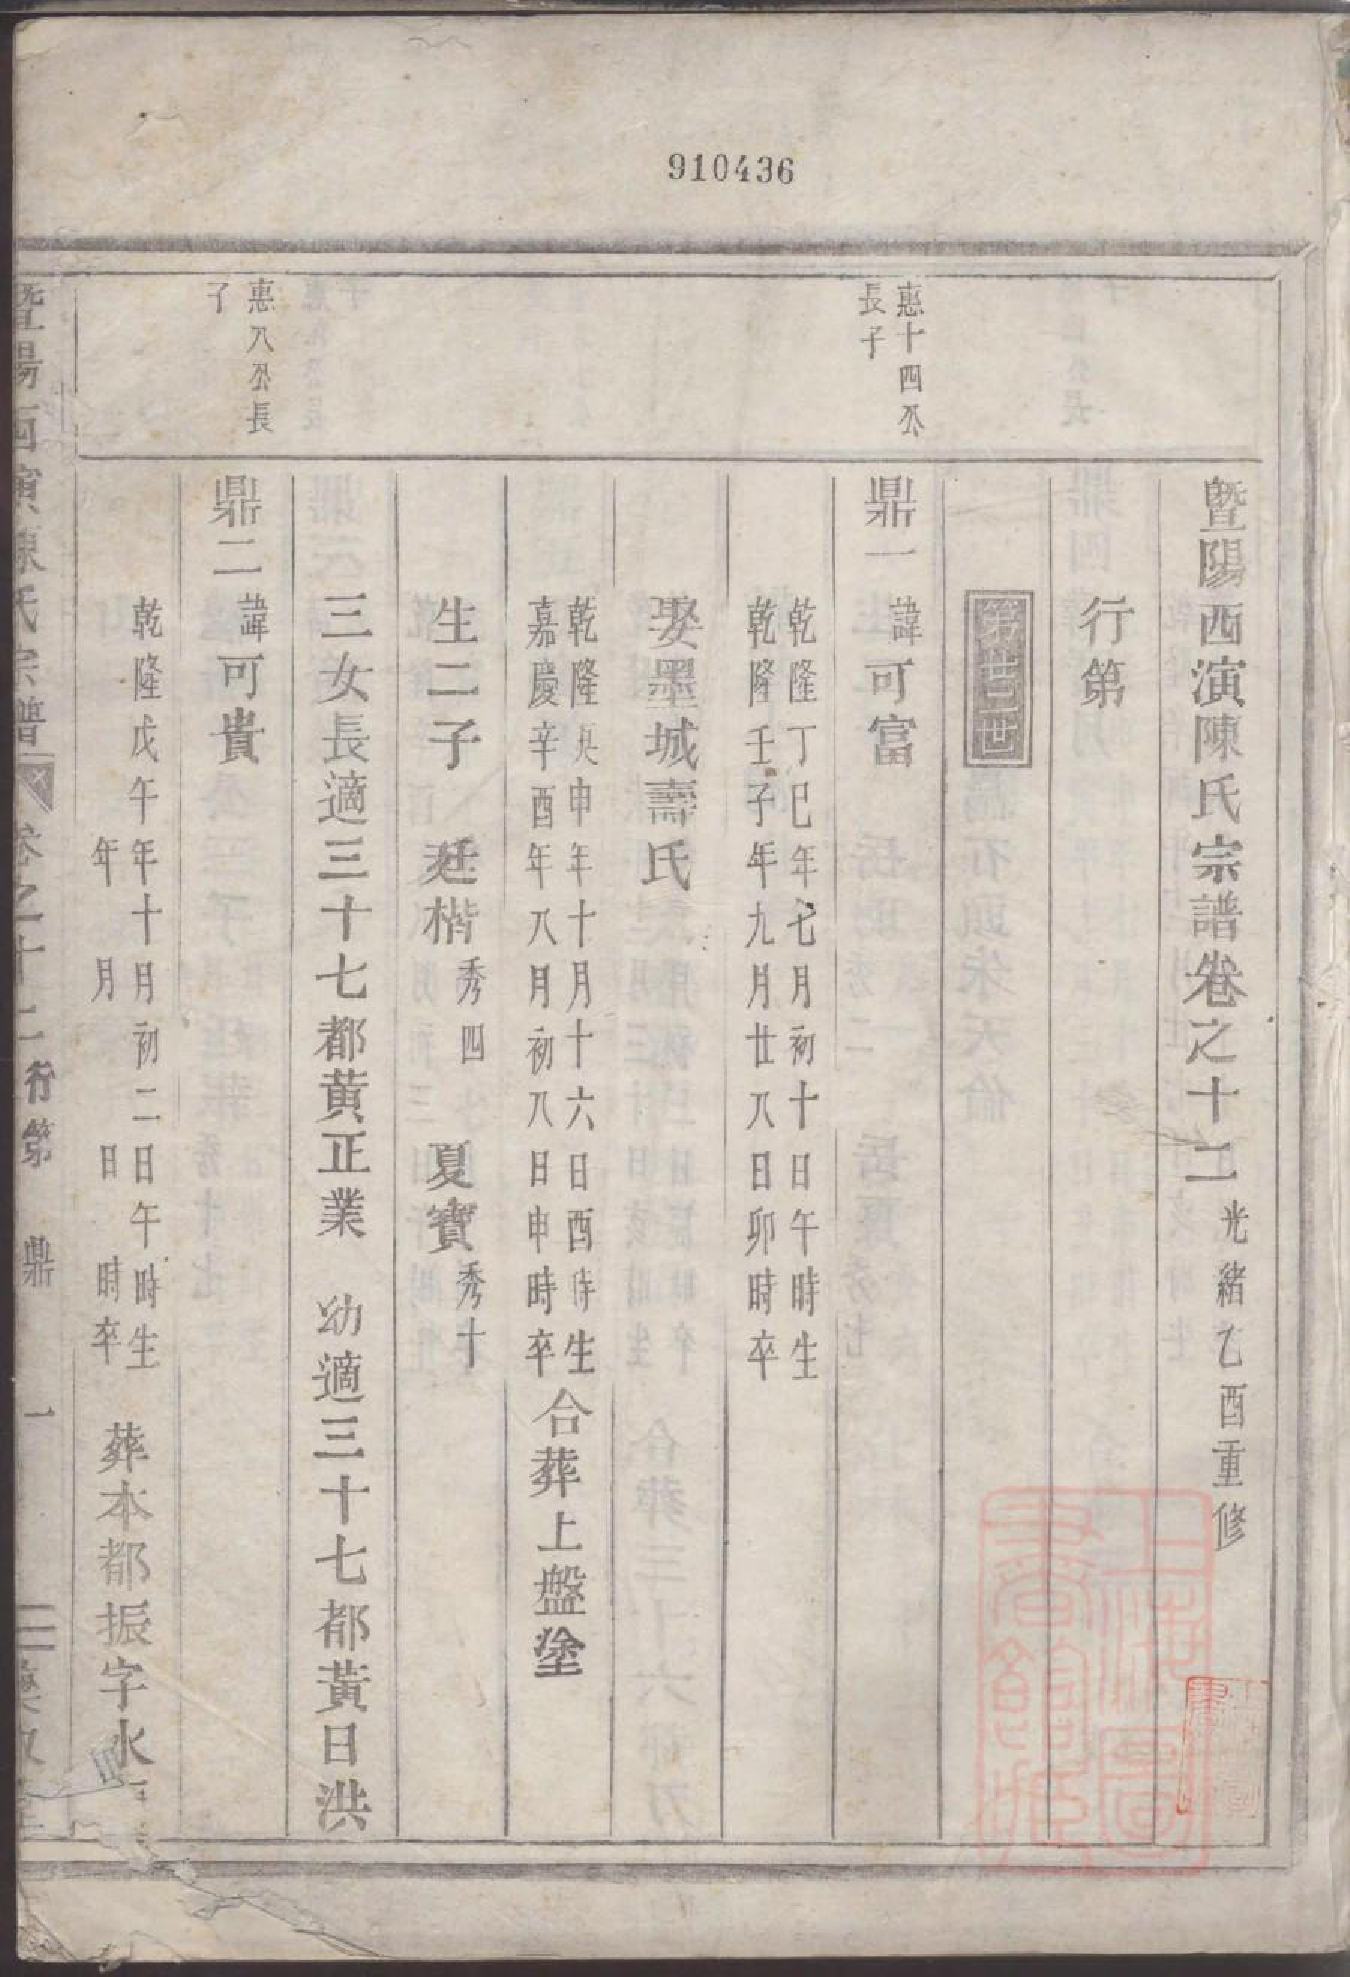 910436
暨陽西演陳氏宗譜卷之十二 光緒乙酉重修
行第
第卅三世
惠十四公
長子
鼎一 諱可富
乾隆丁巳年七月初十日午時生
乾隆壬子年九月廿八日卯時卒
娶墨城壽氏
乾隆庚申年十月十六日酉時生
嘉慶辛酉年八月初八日申時卒
合葬上盤塗
生二子 廷楷 秀四 夏寶 秀十
三女長適三十七都黃正業 幼適三十七都黃日洪
惠八公長
子
鼎二 諱可貴
乾隆戊午年十月初二日午時生
年 月 日 時卒
葬本都振字水
暨陽西演陳氏宗譜 卷之十二 行第 鼎 一
上海圖書館藏